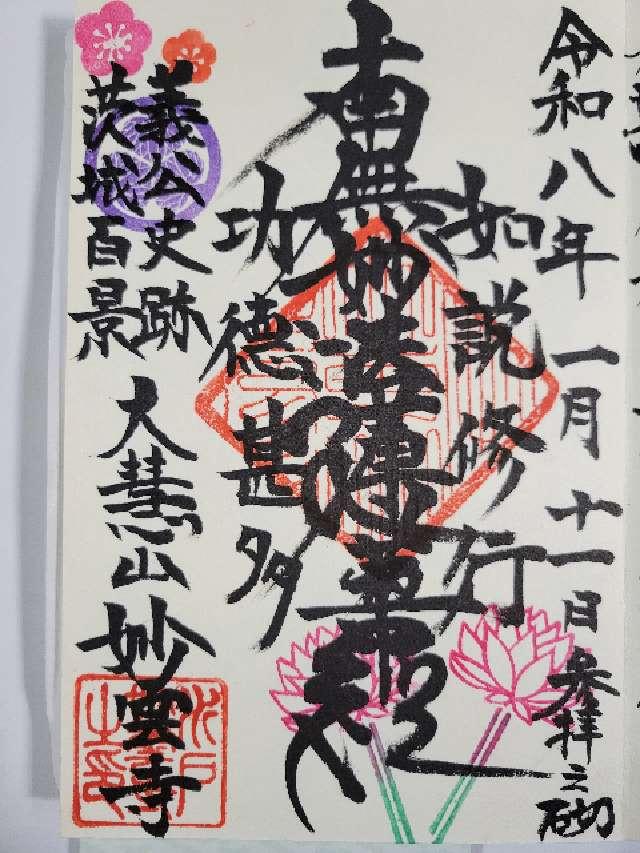 令和八年一月十一日参拝之砌
如説修行
南無妙法蓮華経
功徳甚多
義公史跡
茨城百景
大慧山妙雲寺